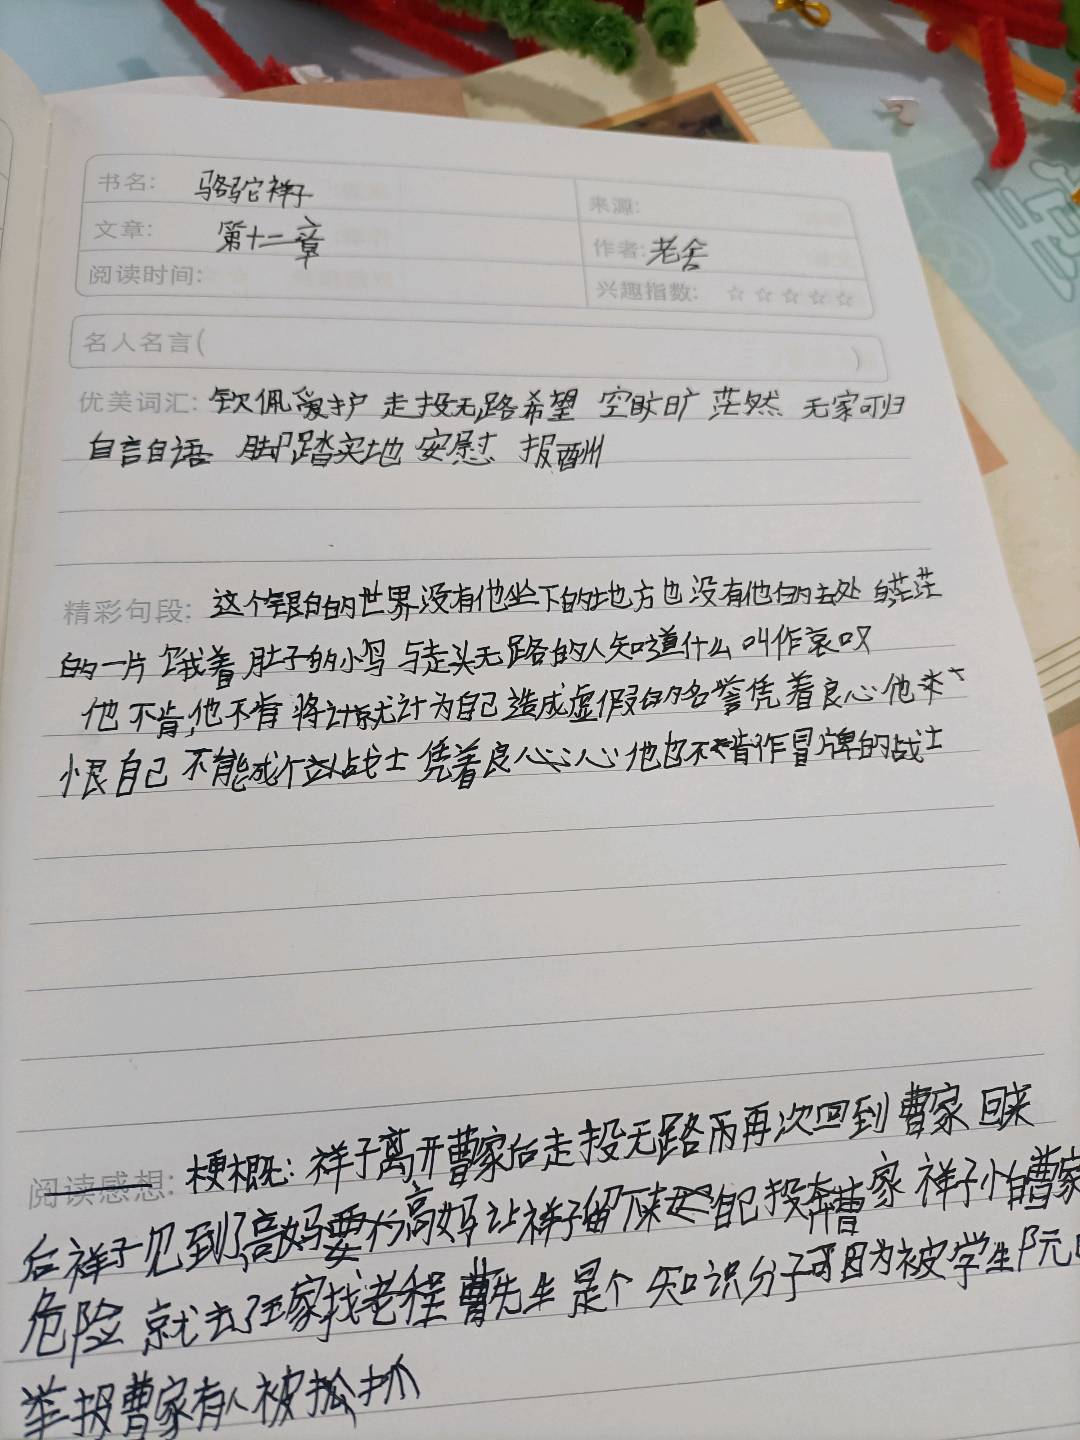 书名: 骆驼祥子
来源:
文章: 第十二章
作者: 老舍
阅读时间:
兴趣指数: ☆☆☆☆☆
名人名言( )
优美词汇: 钦佩 爱护 走投无路 希望 空旷 茫然 无家可归
自言自语 脚踏实地 安慰 报酬
精彩句段: 这个银白的世界没有他坐下的地方也没有他的去处 白茫茫
的一片 饿着肚子的小鸟 与走头无路的人知道什么叫作哀叹
他不肯,他不肯将计就计为自己造成虚假的名誉凭着良心他
恨自己不能成个战士 凭着良心 他也不肯作冒牌的战士
阅读感想: 梗概: 祥子离开曹家后走投无路而再次回到曹家 回来
后祥子见到了高妈 高妈让祥子留下来 自己投奔曹家 祥子怕曹家
危险 就去了王家找老程 曹先生是个知识分子 可因为被学生阮
举报曹家有人被抓